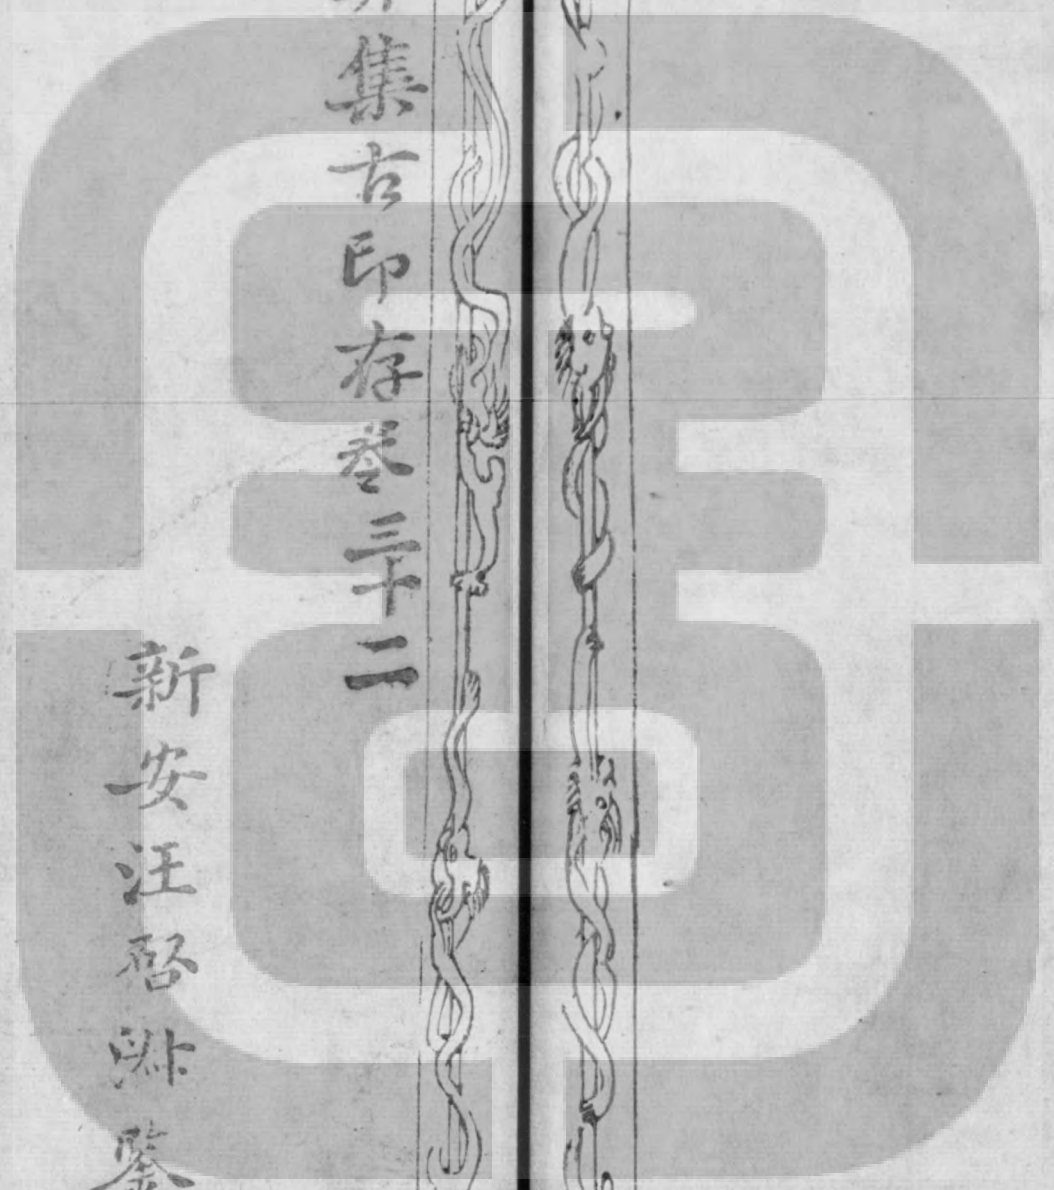 集古印存卷三十二
新安汪啓淑鑒